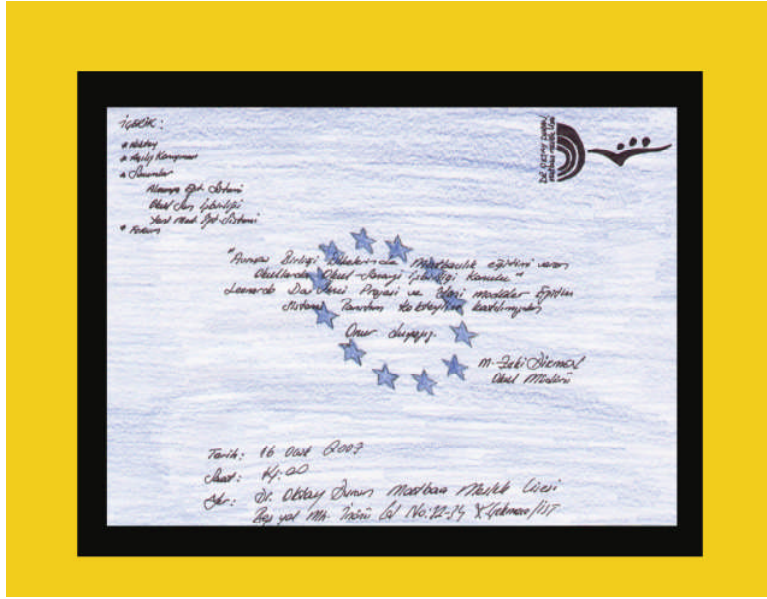 İÇERİK :
* Kokteyl
* Açılış Konuşması
* Sunumlar
Almanya Eğt. Sistemi
Okul San. İşbirliği
Yeni Mod. Eğt. Sistemi
* Forum
"Avrupa Birliği Ülkelerinde Matbaacılık eğitimi veren
Okullarda Okul-Sanayi İşbirliği Konulu"
Leonardo Da Vinci Projesi ve Yeni Modüler Eğitim
Sistemi Tanıtım Kokteyline katılımınızdan
Onur duyarız.
M. Zeki
Okul Müdürü
Tarih: 16 Ocak 2007
Saat: 14:00
Yer: Dr. Oktay Duran Matbaa Meslek Lisesi
Beş yol Mh. İnönü Cd. No: 32-34 K.Çekmece/İST